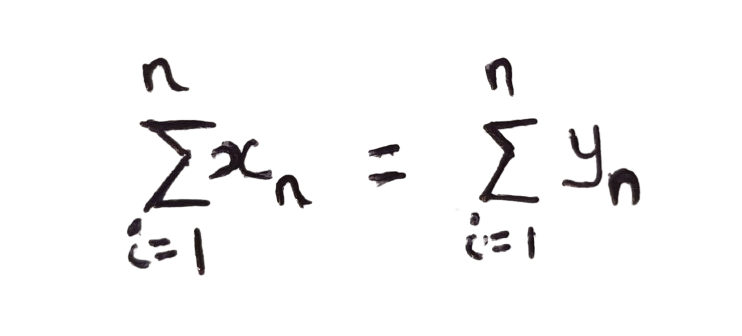 $\sum_{i=1}^{n} x_n = \sum_{i=1}^{n} y_n$